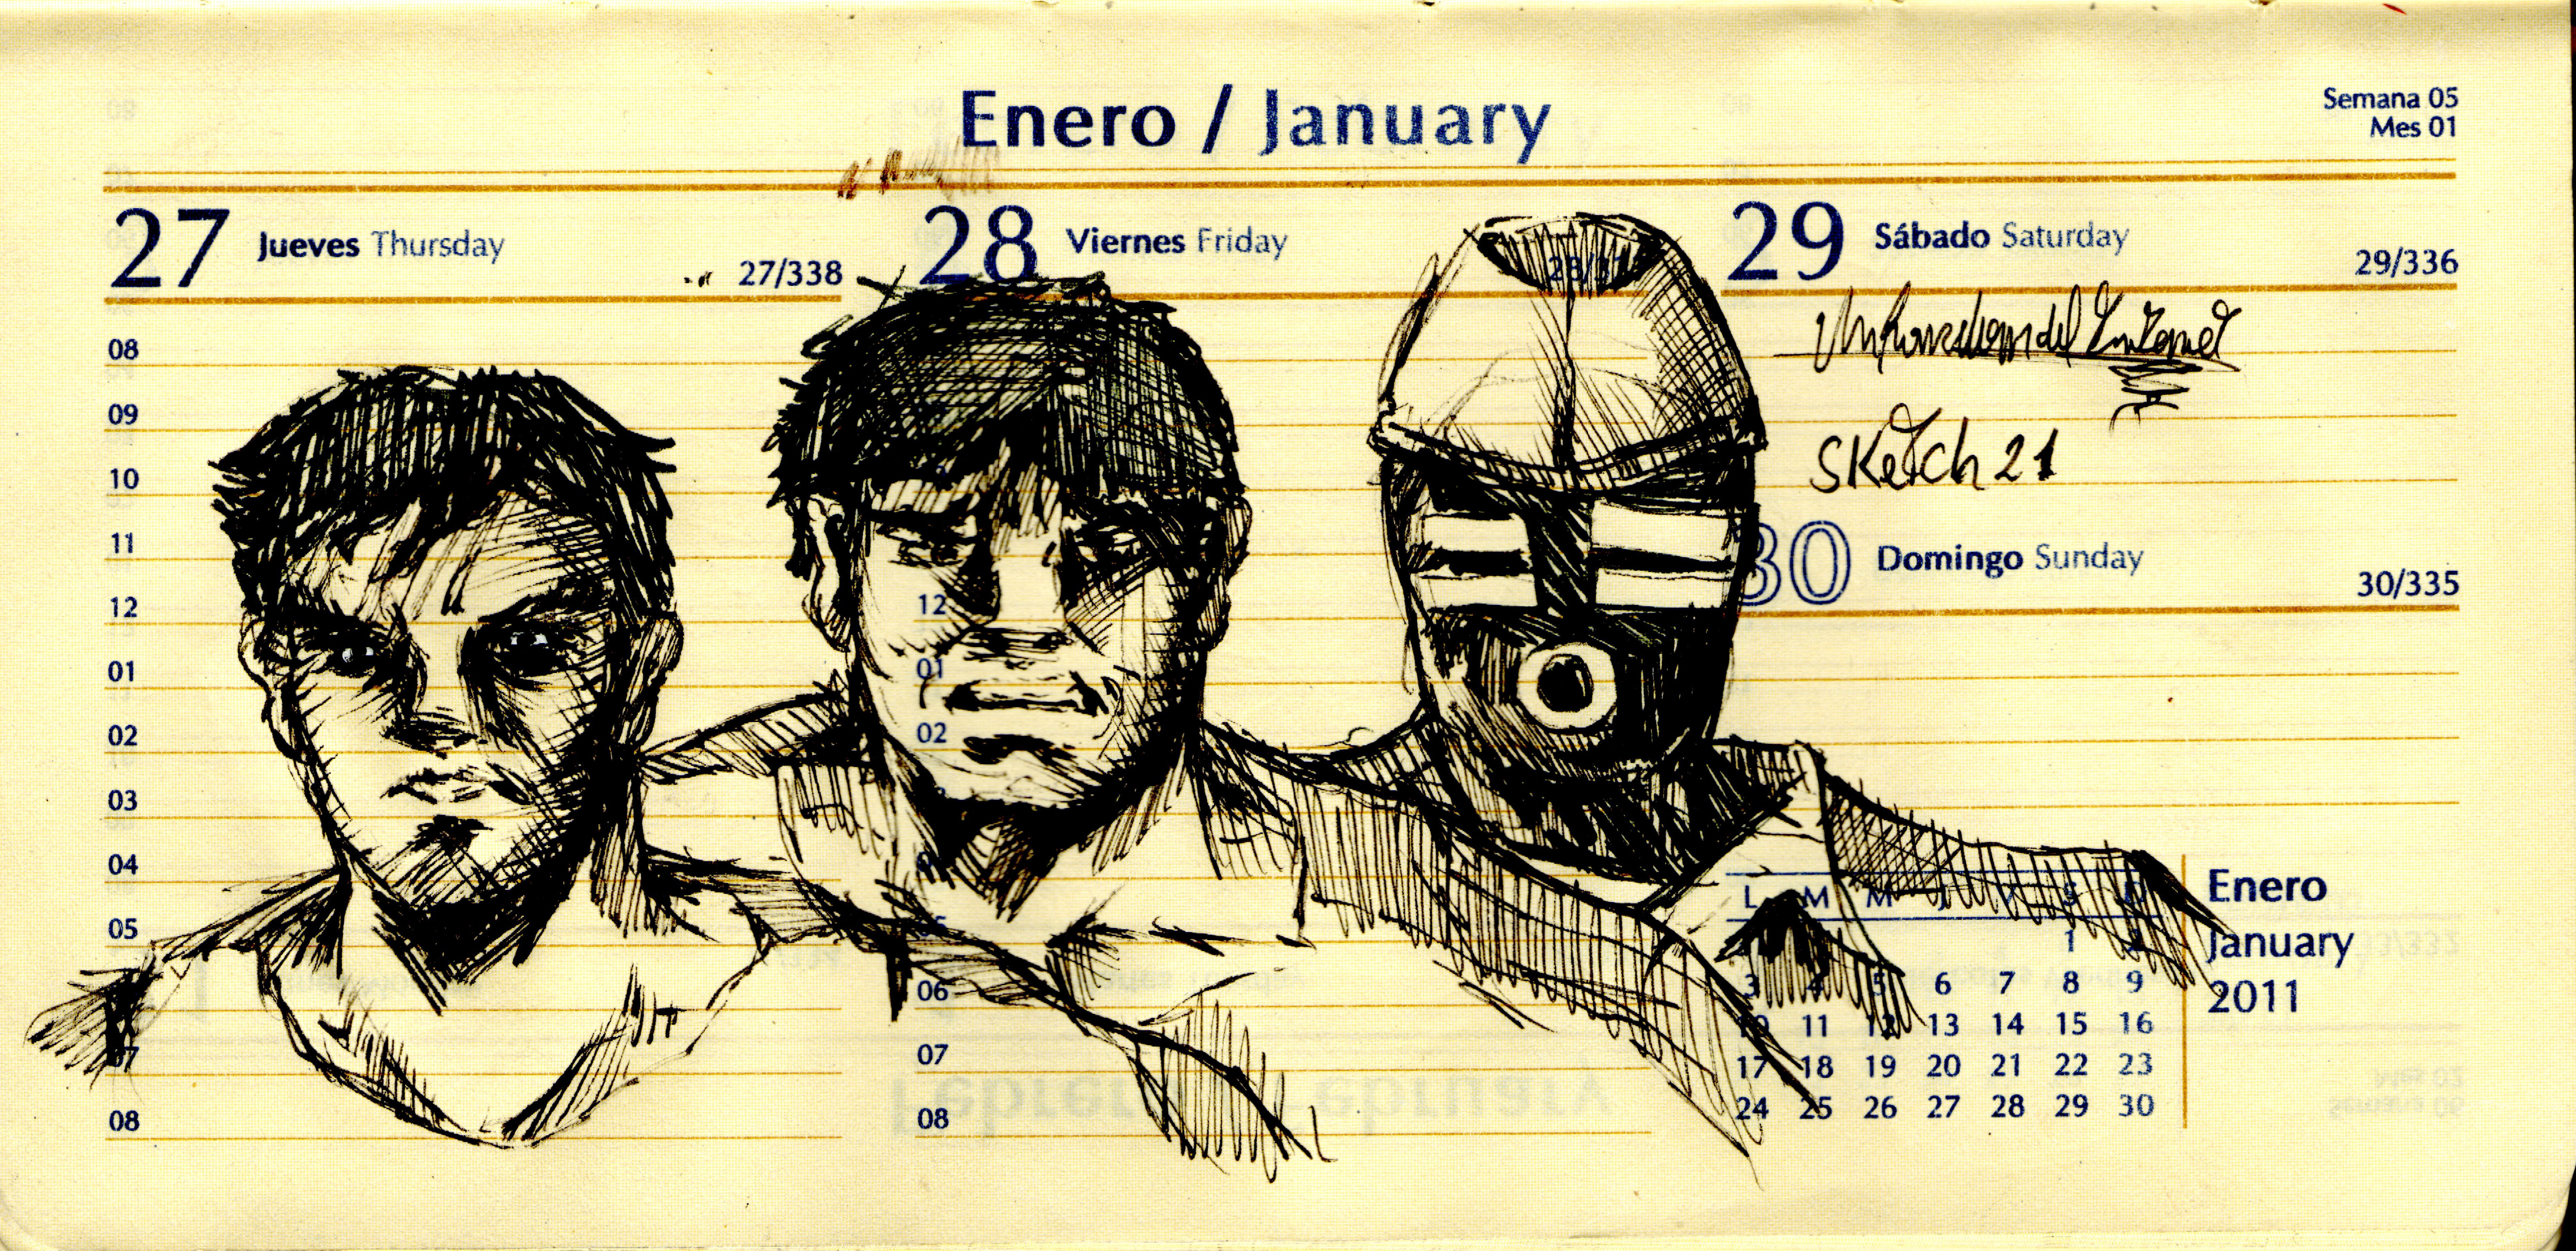 Enero / January
Semana 05
Mes 01
27 Jueves Thursday
27/338
28 Viernes Friday
29 Sábado Saturday
29/336
Sketch 21
30 Domingo Sunday
30/335
08
09
10
11
12
01
02
03
04
05
07
08
12
01
02
06
07
08
L M M
1 2
3 4 5 6 7 8 9
10 11 12 13 14 15 16
17 18 19 20 21 22 23
24 25 26 27 28 29 30
Enero
January
2011